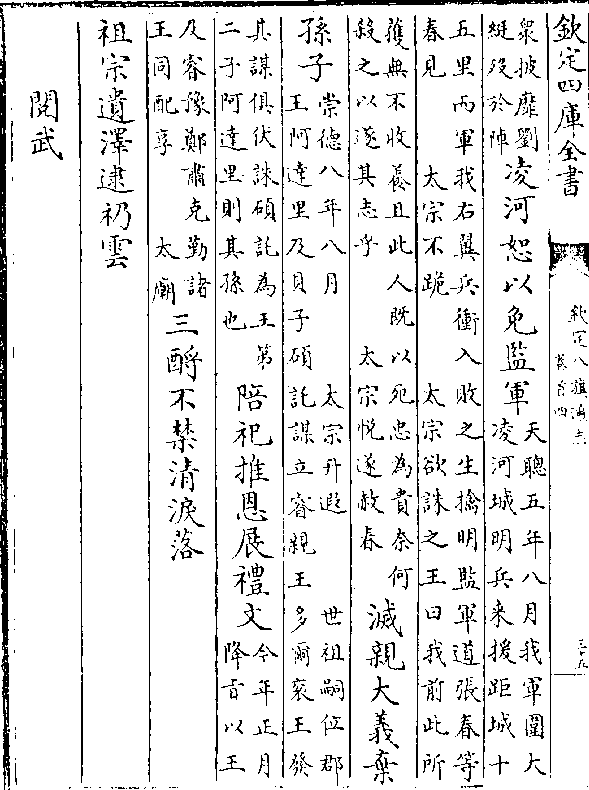 欽定四庫全書
欽定八旗通志
卷首四
三十九
衆披靡劉
綎歿於陣
凌河恕以免監軍
天聰五年八月我軍圍大
凌河城明兵来援距城十
五里兩軍我右翼兵衝入敗之生擒明監軍道張春等
春見 太宗不跪 太宗欲誅之王曰我前此所
獲無不收養且此人既以死忠為貴奈何
殺之以遂其志乎 太宗悦遂赦春
滅親大義棄
孫子
崇德八年八月 太宗升遐 世祖嗣位郡
王阿達里及貝子碩託謀立睿親王多爾衮王發
其謀俱伏誅碩託為王第
二子阿達里則其孫也
陪祀推恩展禮文
今年正月
降旨以王
及睿豫鄭肅克勤諸
王同配享 太廟
三酹不禁清淚落
祖宗遺澤逮礽雲
閱武